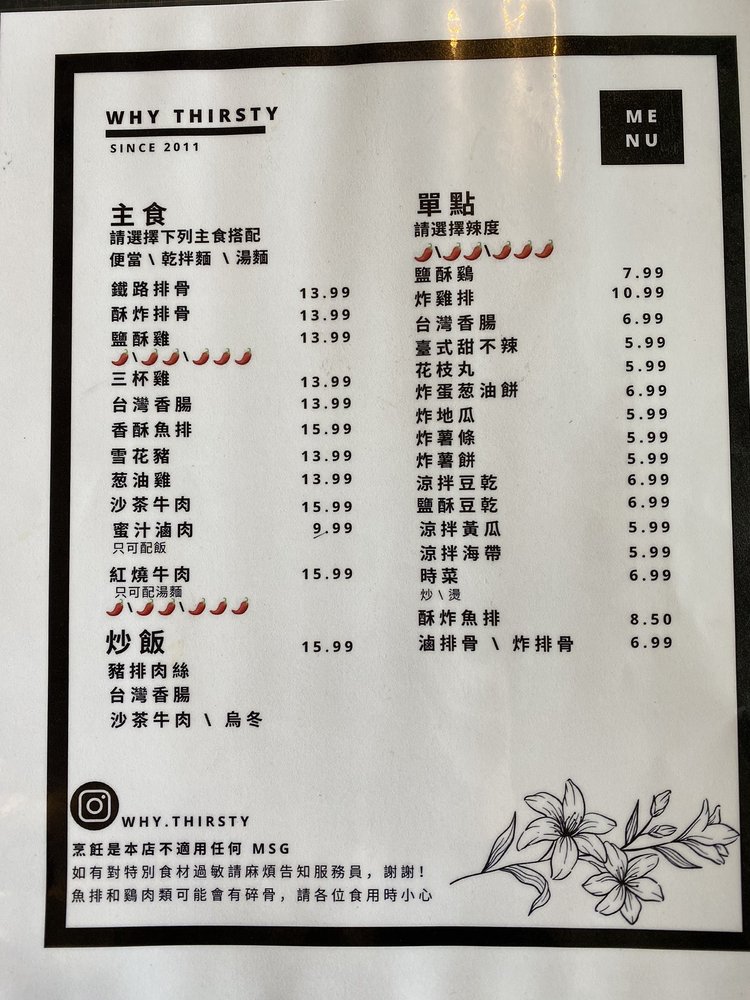 WHY THIRSTY
SINCE 2011
ME
NU
主食
請選擇下列主食搭配
便當 \ 乾拌麵 \ 湯麵
鐵路排骨 13.99
酥炸排骨 13.99
鹽酥雞 13.99
三杯雞 13.99
台灣香腸 13.99
香酥魚排 15.99
雪花豬 13.99
葱油雞 13.99
沙茶牛肉 15.99
蜜汁滷肉 9.99
只可配飯
紅燒牛肉 15.99
只可配湯麵
炒飯 15.99
豬排肉絲
台灣香腸
沙茶牛肉 \ 烏冬
單點
請選擇辣度
鹽酥鷄 7.99
炸雞排 10.99
台灣香腸 6.99
臺式甜不辣 5.99
花枝丸 5.99
炸蛋葱油餅 6.99
炸地瓜 5.99
炸薯條 5.99
炸薯餅 5.99
涼拌豆乾 6.99
鹽酥豆乾 6.99
涼拌黃瓜 5.99
涼拌海帶 5.99
時菜 6.99
炒 \ 燙
酥炸魚排 8.50
滷排骨 \ 炸排骨 6.99
WHY.THIRSTY
烹飪是本店不適用任何 MSG
如有對特別食材過敏請麻煩告知服務員，謝謝！
魚排和鷄肉類可能會有碎骨，請各位食用時小心